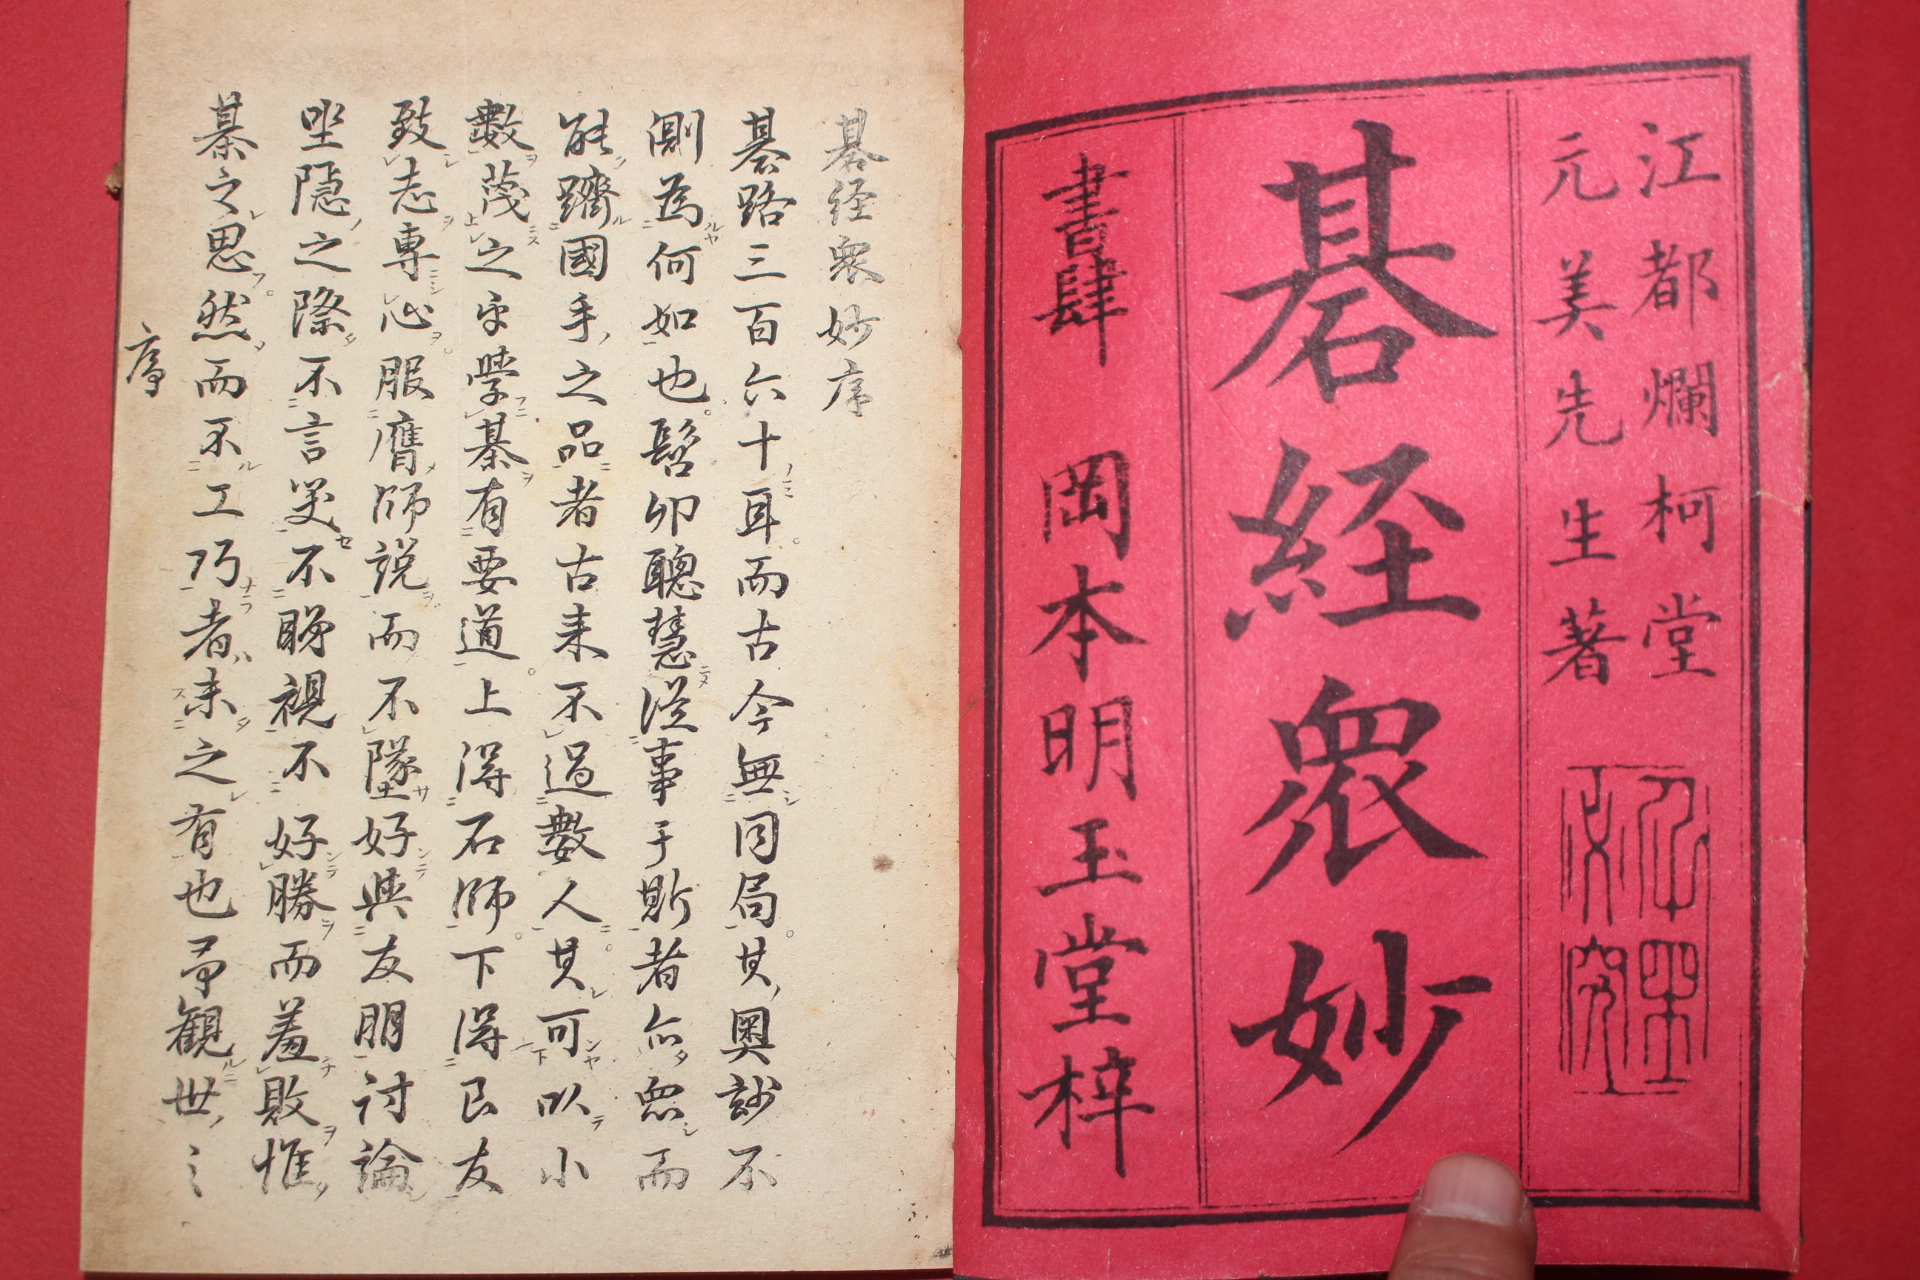 江都爛柯堂
元美先生著
碁経衆妙
書肆 岡本明玉堂梓
碁経衆妙序
碁路三百六十耳而古今無同局其奥玅不
測為何如也髫丱聰慧従事于斯者亦衆而
能躋國手之品者古来不過數人其可以小
數蔑之乎學棊有要道上得石師下得良友
致志專心服膺師説而不墜好與友朋討論
坐隠之際不言笑不睇視不好勝而羞敗惟
棊之思然而不工巧者未之有也予観世之
序